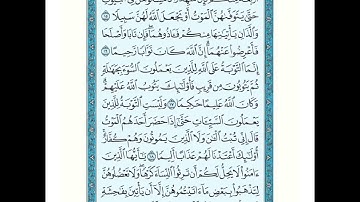 حَتَّىٰ يَتَوَفَّىٰهُنَّ ٱلْمَوْتُ أَوْ يَجْعَلَ ٱللَّهُ لَهُنَّ سَبِيلًا ١٥
وَٱلَّذَانِ يَأْتِيَٰنِهَا مِنكُمْ فَـَٔاذُوهُمَا ۖ فَإِن تَابَا وَأَصْلَحَا
فَأَعْرِضُوا۟ عَنْهُمَآ ۗ إِنَّ ٱللَّهَ كَانَ تَوَّابًا رَّحِيمًا ١٦
إِنَّمَا ٱلتَّوْبَةُ عَلَى ٱللَّهِ لِلَّذِينَ يَعْمَلُونَ ٱلسُّوٓءَ بِجَهَٰلَةٍ
ثُمَّ يَتُوبُونَ مِن قَرِيبٍ فَأُو۟لَٰٓئِكَ يَتُوبُ ٱللَّهُ عَلَيْهِمْ ۗ
وَكَانَ ٱللَّهُ عَلِيمًا حَكِيمًا ١٧ وَلَيْسَتِ ٱلتَّوْبَةُ لِلَّذِينَ
يَعْمَلُونَ ٱلسَّيِّـَٔاتِ حَتَّىٰٓ إِذَا حَضَرَ أَحَدَهُمُ ٱلْمَوْتُ
قَالَ إِنِّى تُبْتُ ٱلْـَٰٔنَ وَلَا ٱلَّذِينَ يَمُوتُونَ وَهُمْ كُفَّارٌ ۚ
أُو۟لَٰٓئِكَ أَعْتَدْنَا لَهُمْ عَذَابًا أَلِيمًا ١٨ يَٰٓأَيُّهَا ٱلَّذِينَ
ءَامَنُوا۟ لَا يَحِلُّ لَكُمْ أَن تَرِثُوا۟ ٱلنِّسَآءَ كَرْهًا ۖ وَلَا تَعْضُلُوهُنَّ
لِتَذْهَبُوا۟ بِبَعْضِ مَآ ءَاتَيْتُمُوهُنَّ إِلَّآ أَن يَأْتِينَ بِفَٰحِشَةٍ